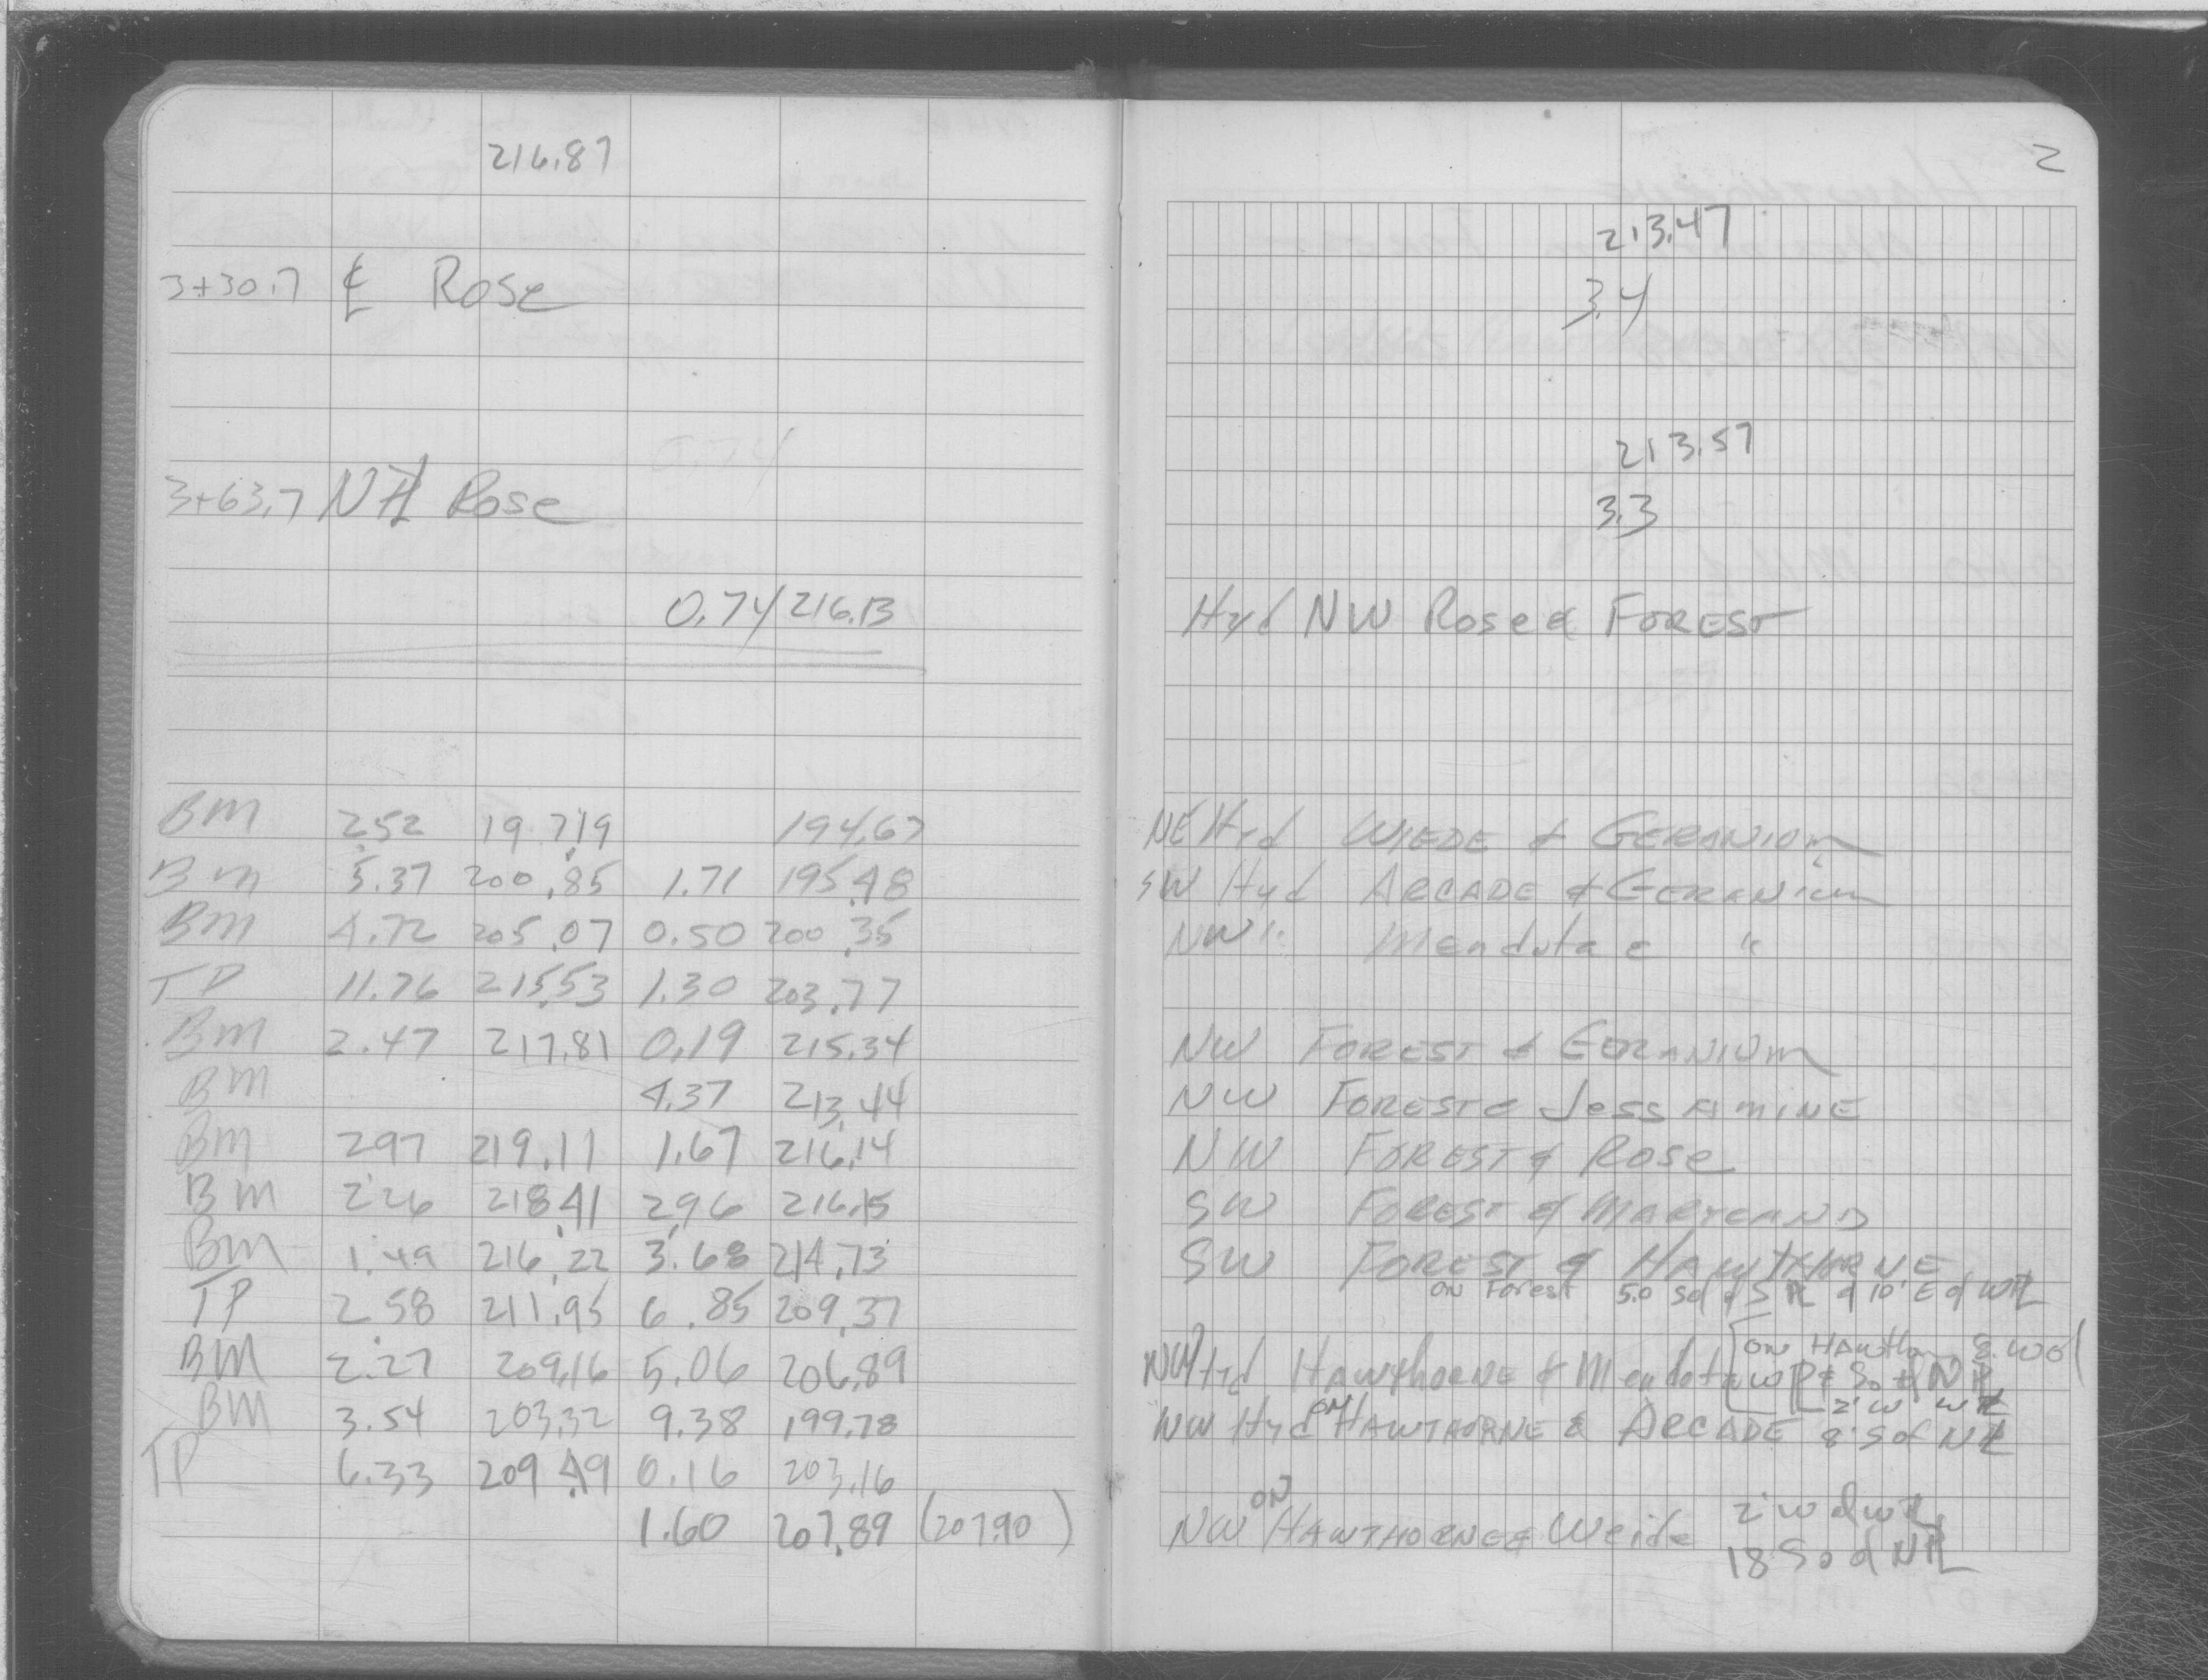 216.87
2
213.47
3+30.7 ℄ Rose 3.4
213.57
3+63.7 N℄ Rose 3.3
0.74 216.13 Hyd NW Rose & FOREST
BM 2.52 197.19 194.67 NE Hyd WIEDE & GERANIUM
BM 5.37 200.85 1.71 195.48 SW Hyd ARCADE & GERANIUM
BM 4.72 205.07 0.50 200.35 NW " Mendota & "
TP 11.76 215.53 1.30 203.77
BM 2.47 217.81 0.19 215.34 NW FOREST & GERANIUM
BM 4.37 213.44 NW FOREST & JessAMINE
BM 2.97 219.11 1.67 216.14 NW FOREST & Rose
BM 2.26 218.41 2.96 216.15 SW FOREST & MARYLAND
BM 1.49 216.22 3.68 214.73 SW FOREST & HAWTHORNE
TP 2.58 211.95 6.85 209.37 ON Forest 5.0 So of S PL & 10' E of W PL
BM 2.27 209.16 5.06 206.89 NW Hyd HAWTHORNE & Mendota [ON HAWTH 8. W of
W PL & So of N PL
BM 3.54 203.32 9.38 199.78 NW Hyd ON HAWTHORNE & ARCADE 2' W W PL
8' S of N PL
TP 6.33 209.49 0.16 203.16
1.60 207.89 (207.90) NW ON HAWTHORNE & Weide 2' W of W PL
18 So of N PL